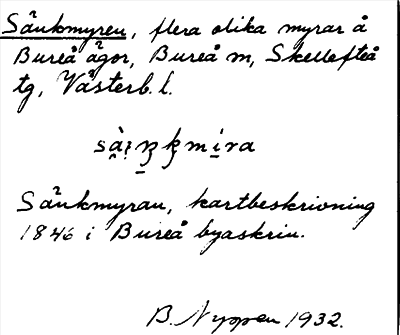 Sänkmyren, flera olika myrar å
Bureå ägor, Bureå m, Skellefteå
tg, Västerb. l.
Sänkmyran, kartbeskrivning
1846 i Bureå byaskrin.
B. Nyppen 1932.